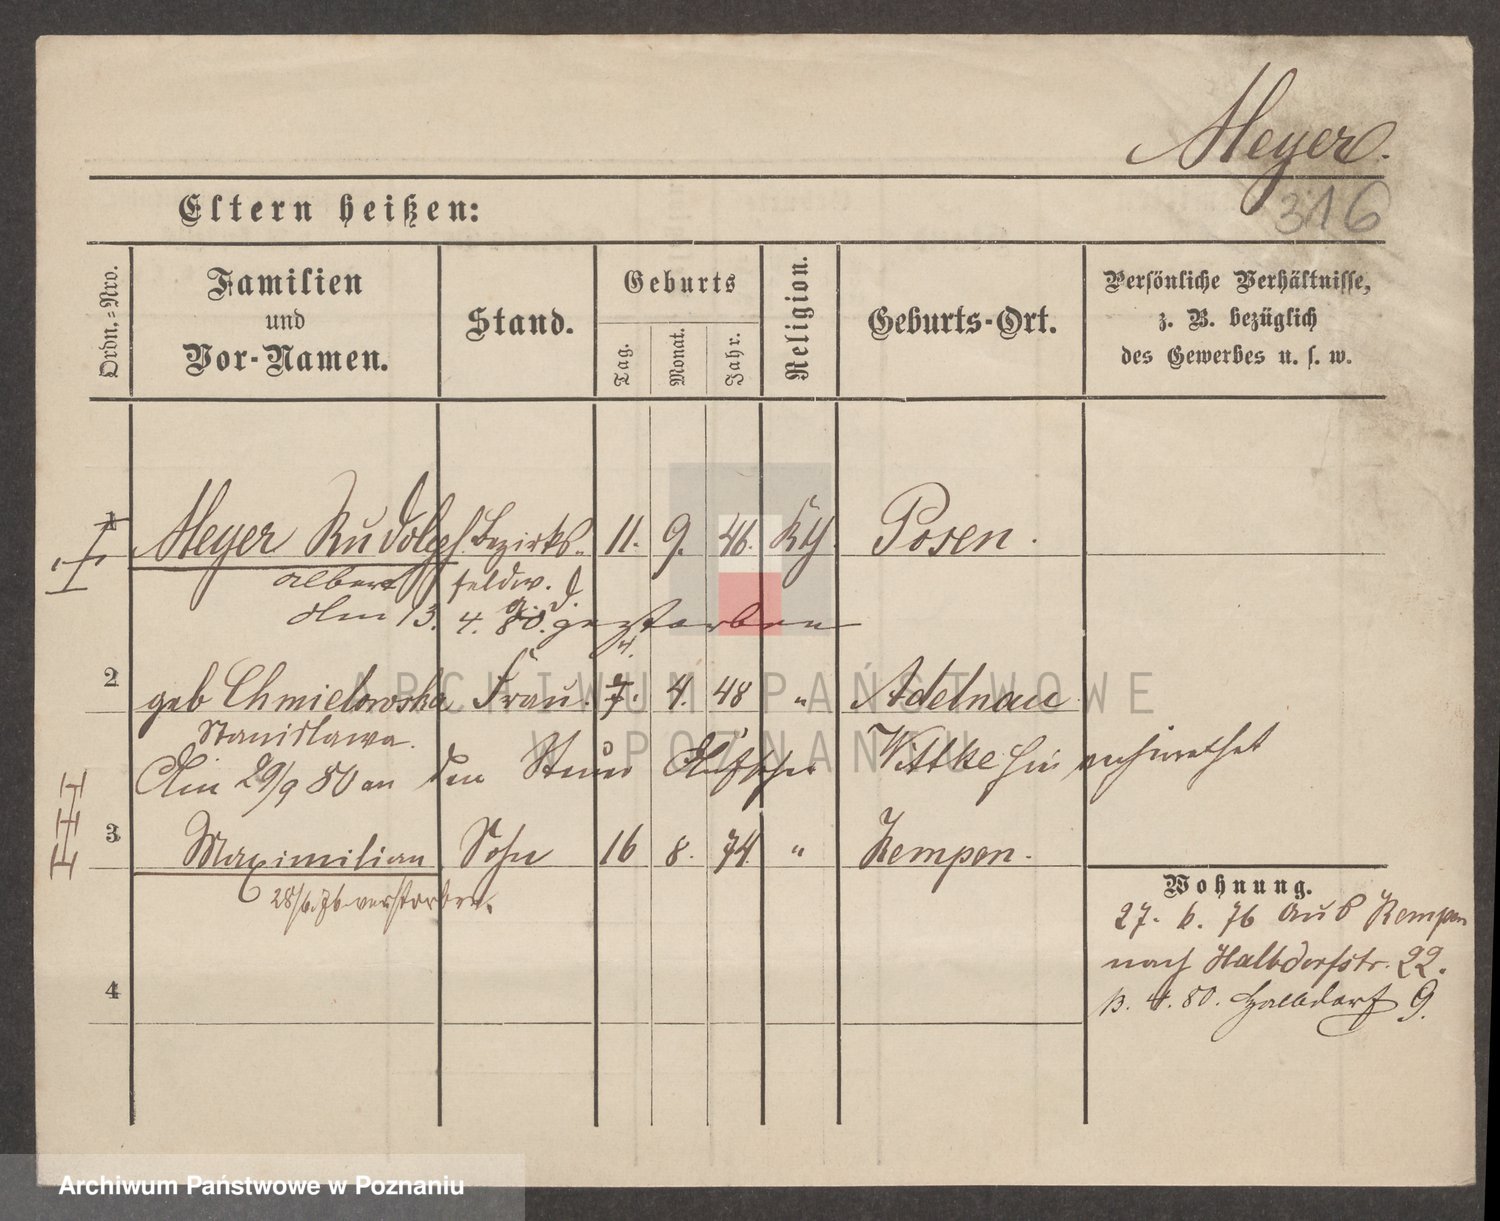 Meyer.
316
Eltern heißen:
Ordn.=Nro.
Familien
und
Vor-Namen.
Stand.
Geburts
Tag.
Monat.
Jahr.
Religion.
Geburts-Ort.
Persönliche Verhältnisse,
z. B. bezüglich
des Gewerbes u. s. w.
1 Meyer Rudolph Bezirks- 11. 9. 46. Kth Posen.
Albert feldw.
a. D.
Am 13. 4. 80. gestorben
2 geb Chmielowska Frau. 7. 4. 48 " Adelnau
Stanislawa.
Am 29/9 80 an den Steuer Wittke hier verheirathet
3 Maximilian Sohn 16 8. 74. " Kempen.
28/6. 76 verstorben.
Wohnung.
27. 6. 76 aus Kempen
nach Halbdorfstr. 22.
13. 4. 80. Halbdorf 9.
4
ARCHIWUM PAŃSTWOWE
W POZNANIU
Archiwum Państwowe w Poznaniu